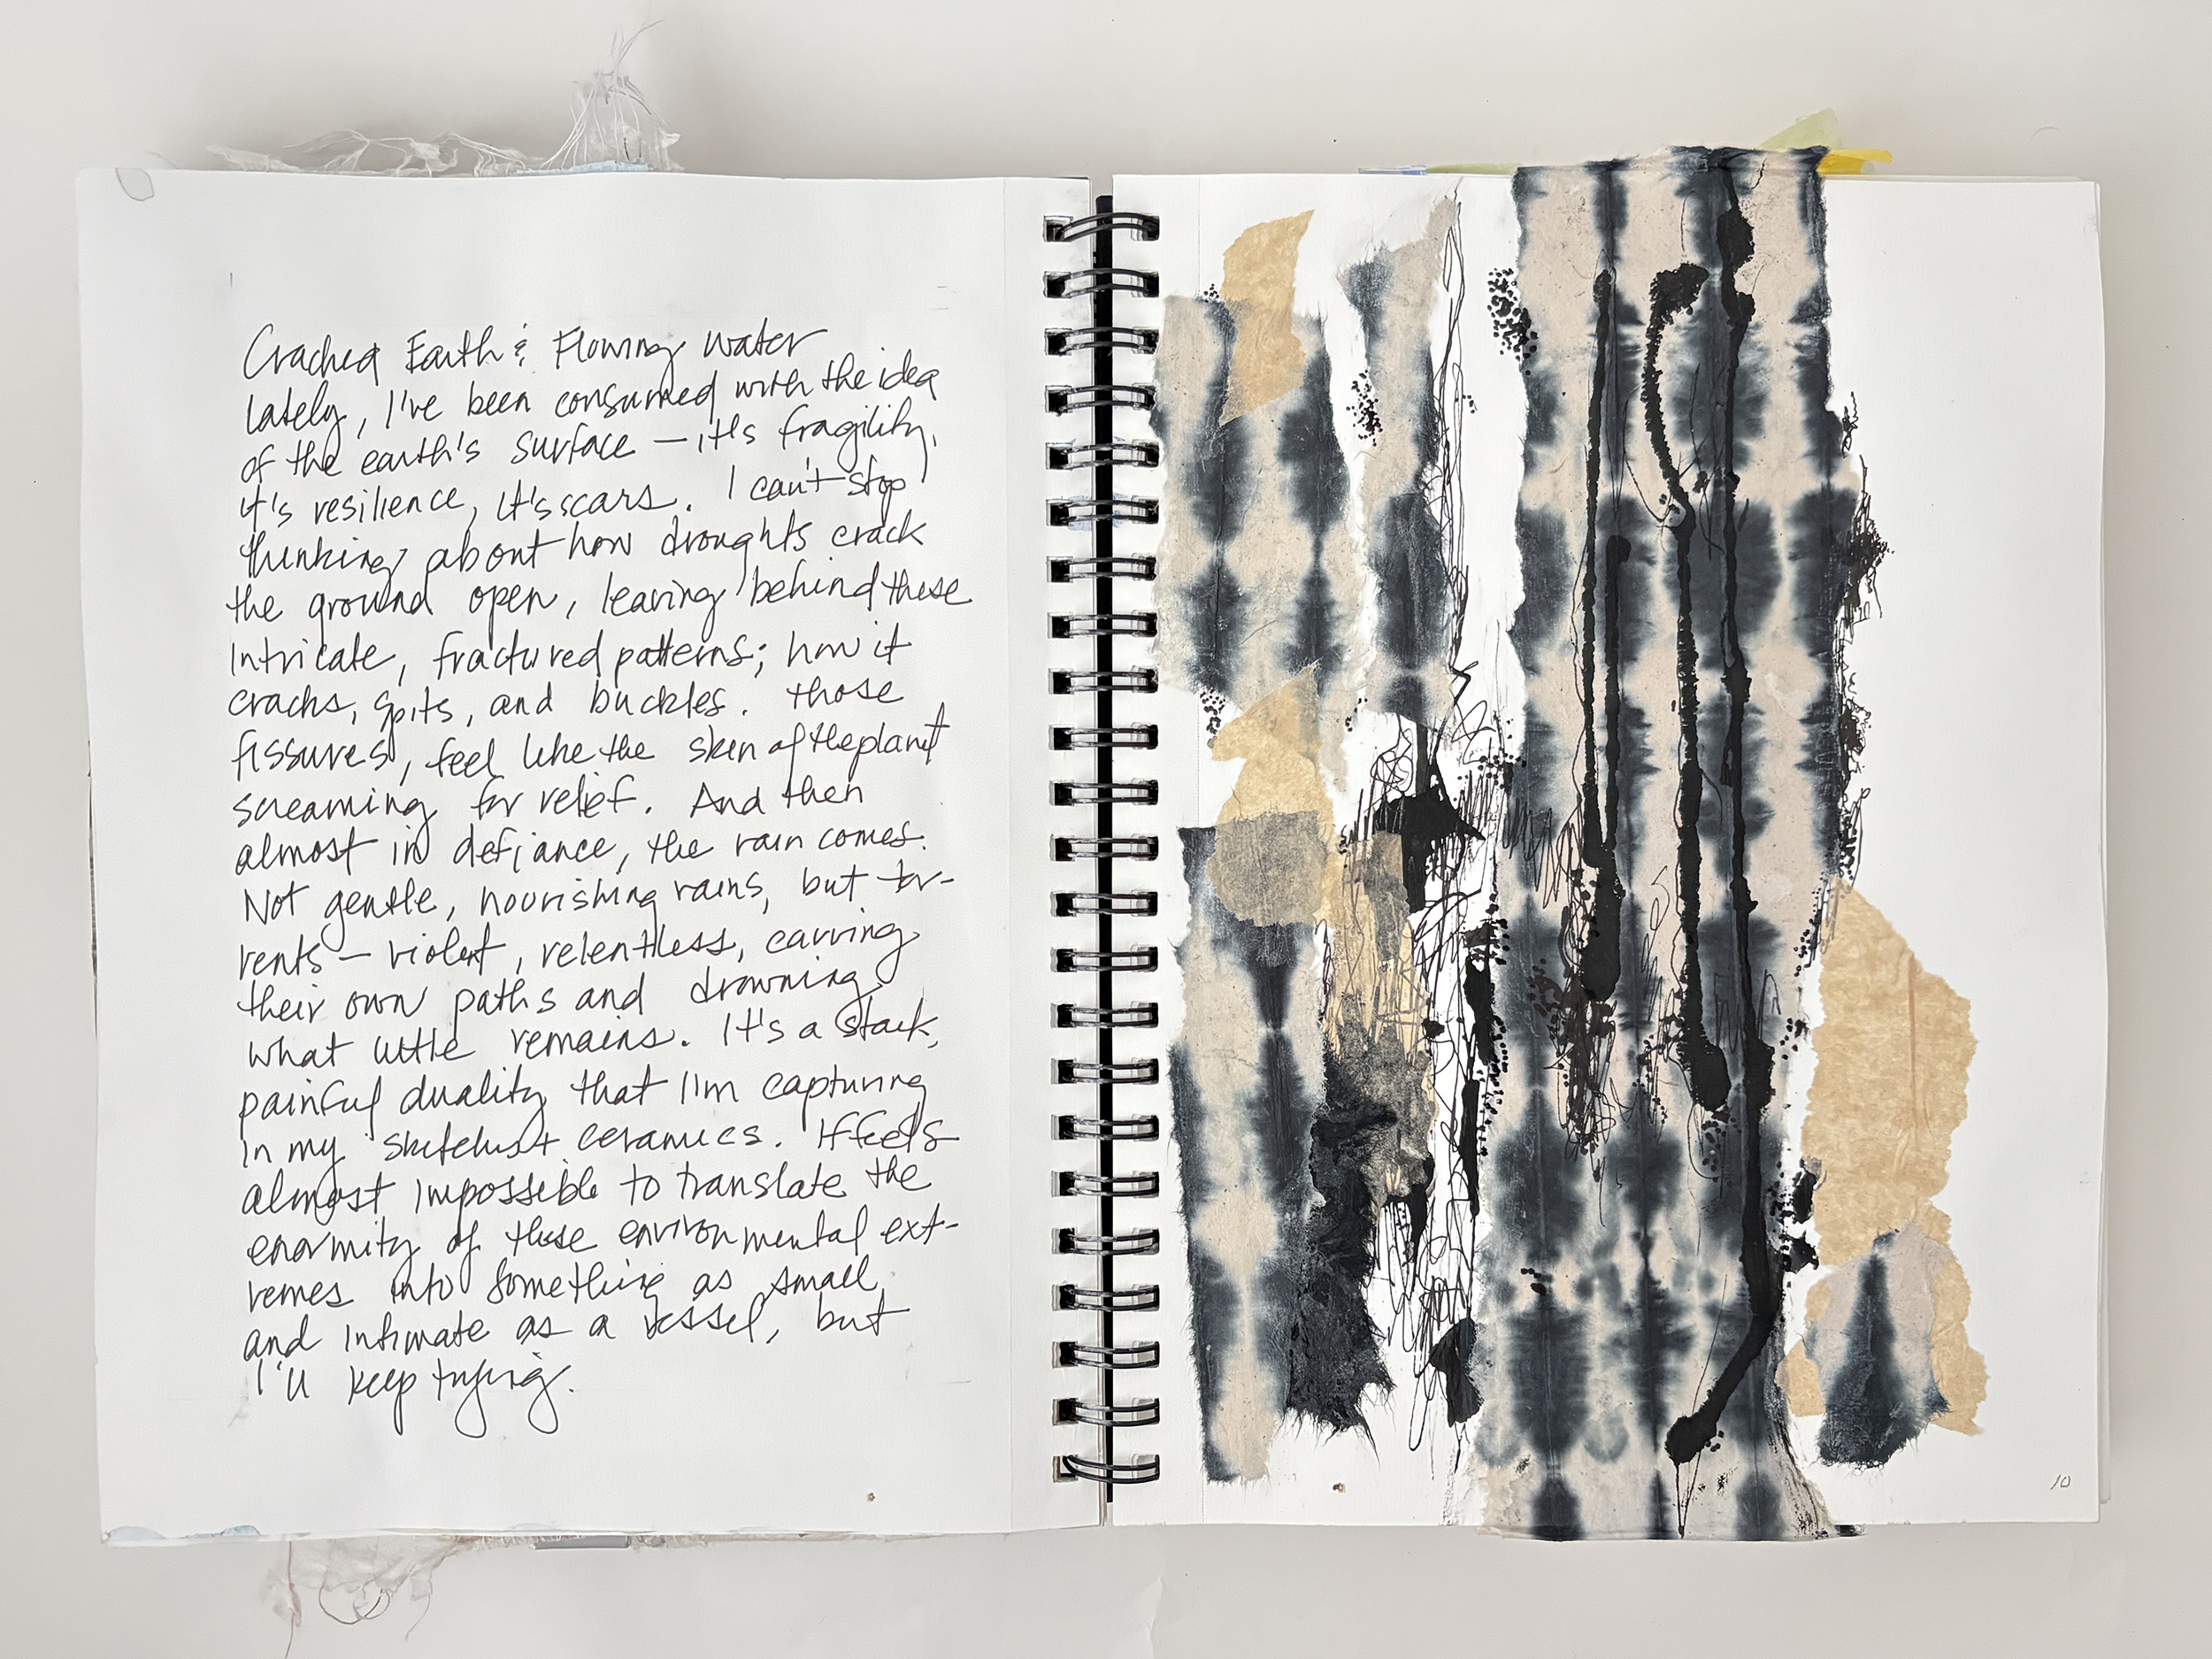 Cracked Earth & Flowing water
lately, I've been consumed with the idea
of the earth's surface — it's fragility,
it's resilience, it's scars. I can't stop
thinking about how droughts crack
the ground open, leaving behind these
intricate, fractured patterns; how it
cracks, spits, and buckles. those
fissures, feel like the skin of the planet
screaming for relief. And then
almost in defiance, the rain comes.
Not gentle, nourishing rains, but tor-
rents — violent, relentless, carving
their own paths and drowning
what little remains. It's a stark,
painful duality that I'm capturing
in my sketches + ceramics. It feels
almost impossible to translate the
enormity of these environmental ext-
remes into something as small
and intimate as a vessel, but
I'll keep trying.
10